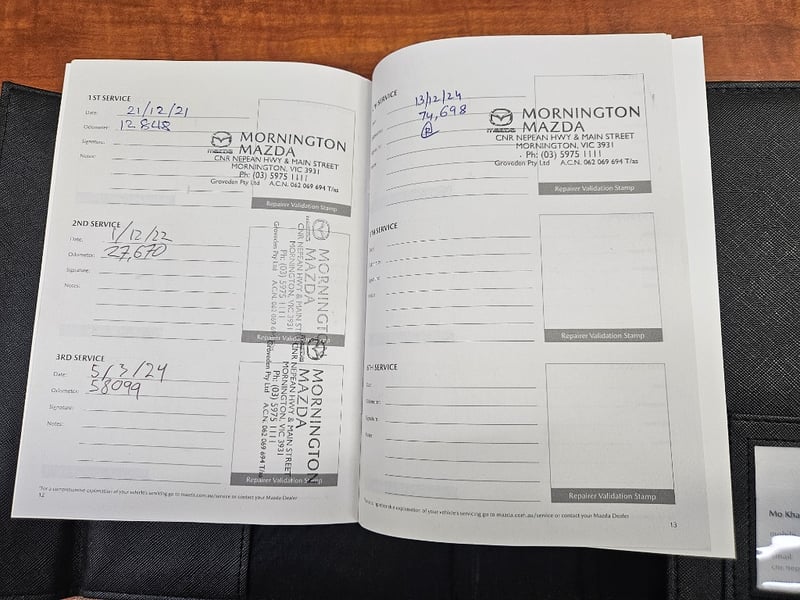 1ST SERVICE
Date: 21/12/21
Odometer: 12 848
Signature:
Notes:
mazda
MORNINGTON
MAZDA
CNR NEPEAN HWY & MAIN STREET
MORNINGTON, VIC 3931
Ph: (03) 5975 1111
Groveden Pty Ltd A.C.N. 062 069 694 T/as
Repairer Validation Stamp
2ND SERVICE
Date: 1/12/22
Odometer: 27,670
Signature:
Notes:
MORNINGTON
MAZDA
CNR NEPEAN HWY & MAIN ST
MORNINGTON, VIC 3931
Ph: (03) 5975 1111
Groveden Pty Ltd A.C.N. 062 069
Repairer Validation Stamp
3RD SERVICE
Date: 5/3/24
Odometer: 58099
Signature:
Notes:
MORNINGTON
MAZDA
CNR NEPEAN HWY & MAIN STREET
MORNINGTON, VIC 3931
Ph: (03) 5975 1111
Groveden Pty Ltd A.C.N. 062 069 694 T/as
Repairer Validation Stamp
*For a comprehensive explanation of your vehicle's servicing go to mazda.com.au/service or contact your Mazda Dealer
12
SERVICE
13/12/24
74,698
mazda
MORNINGTON
MAZDA
CNR NEPEAN HWY & MAIN STREET
MORNINGTON, VIC 3931
Ph: (03) 5975 1111
Groveden Pty Ltd A.C.N. 062 069 694 T/as
Repairer Validation Stamp
SERVICE
Repairer Validation Stamp
6TH SERVICE
Repairer Validation Stamp
explanation of your vehicle's servicing go to mazda.com.au/service or contact your Mazda Dealer
13
Mo Kha